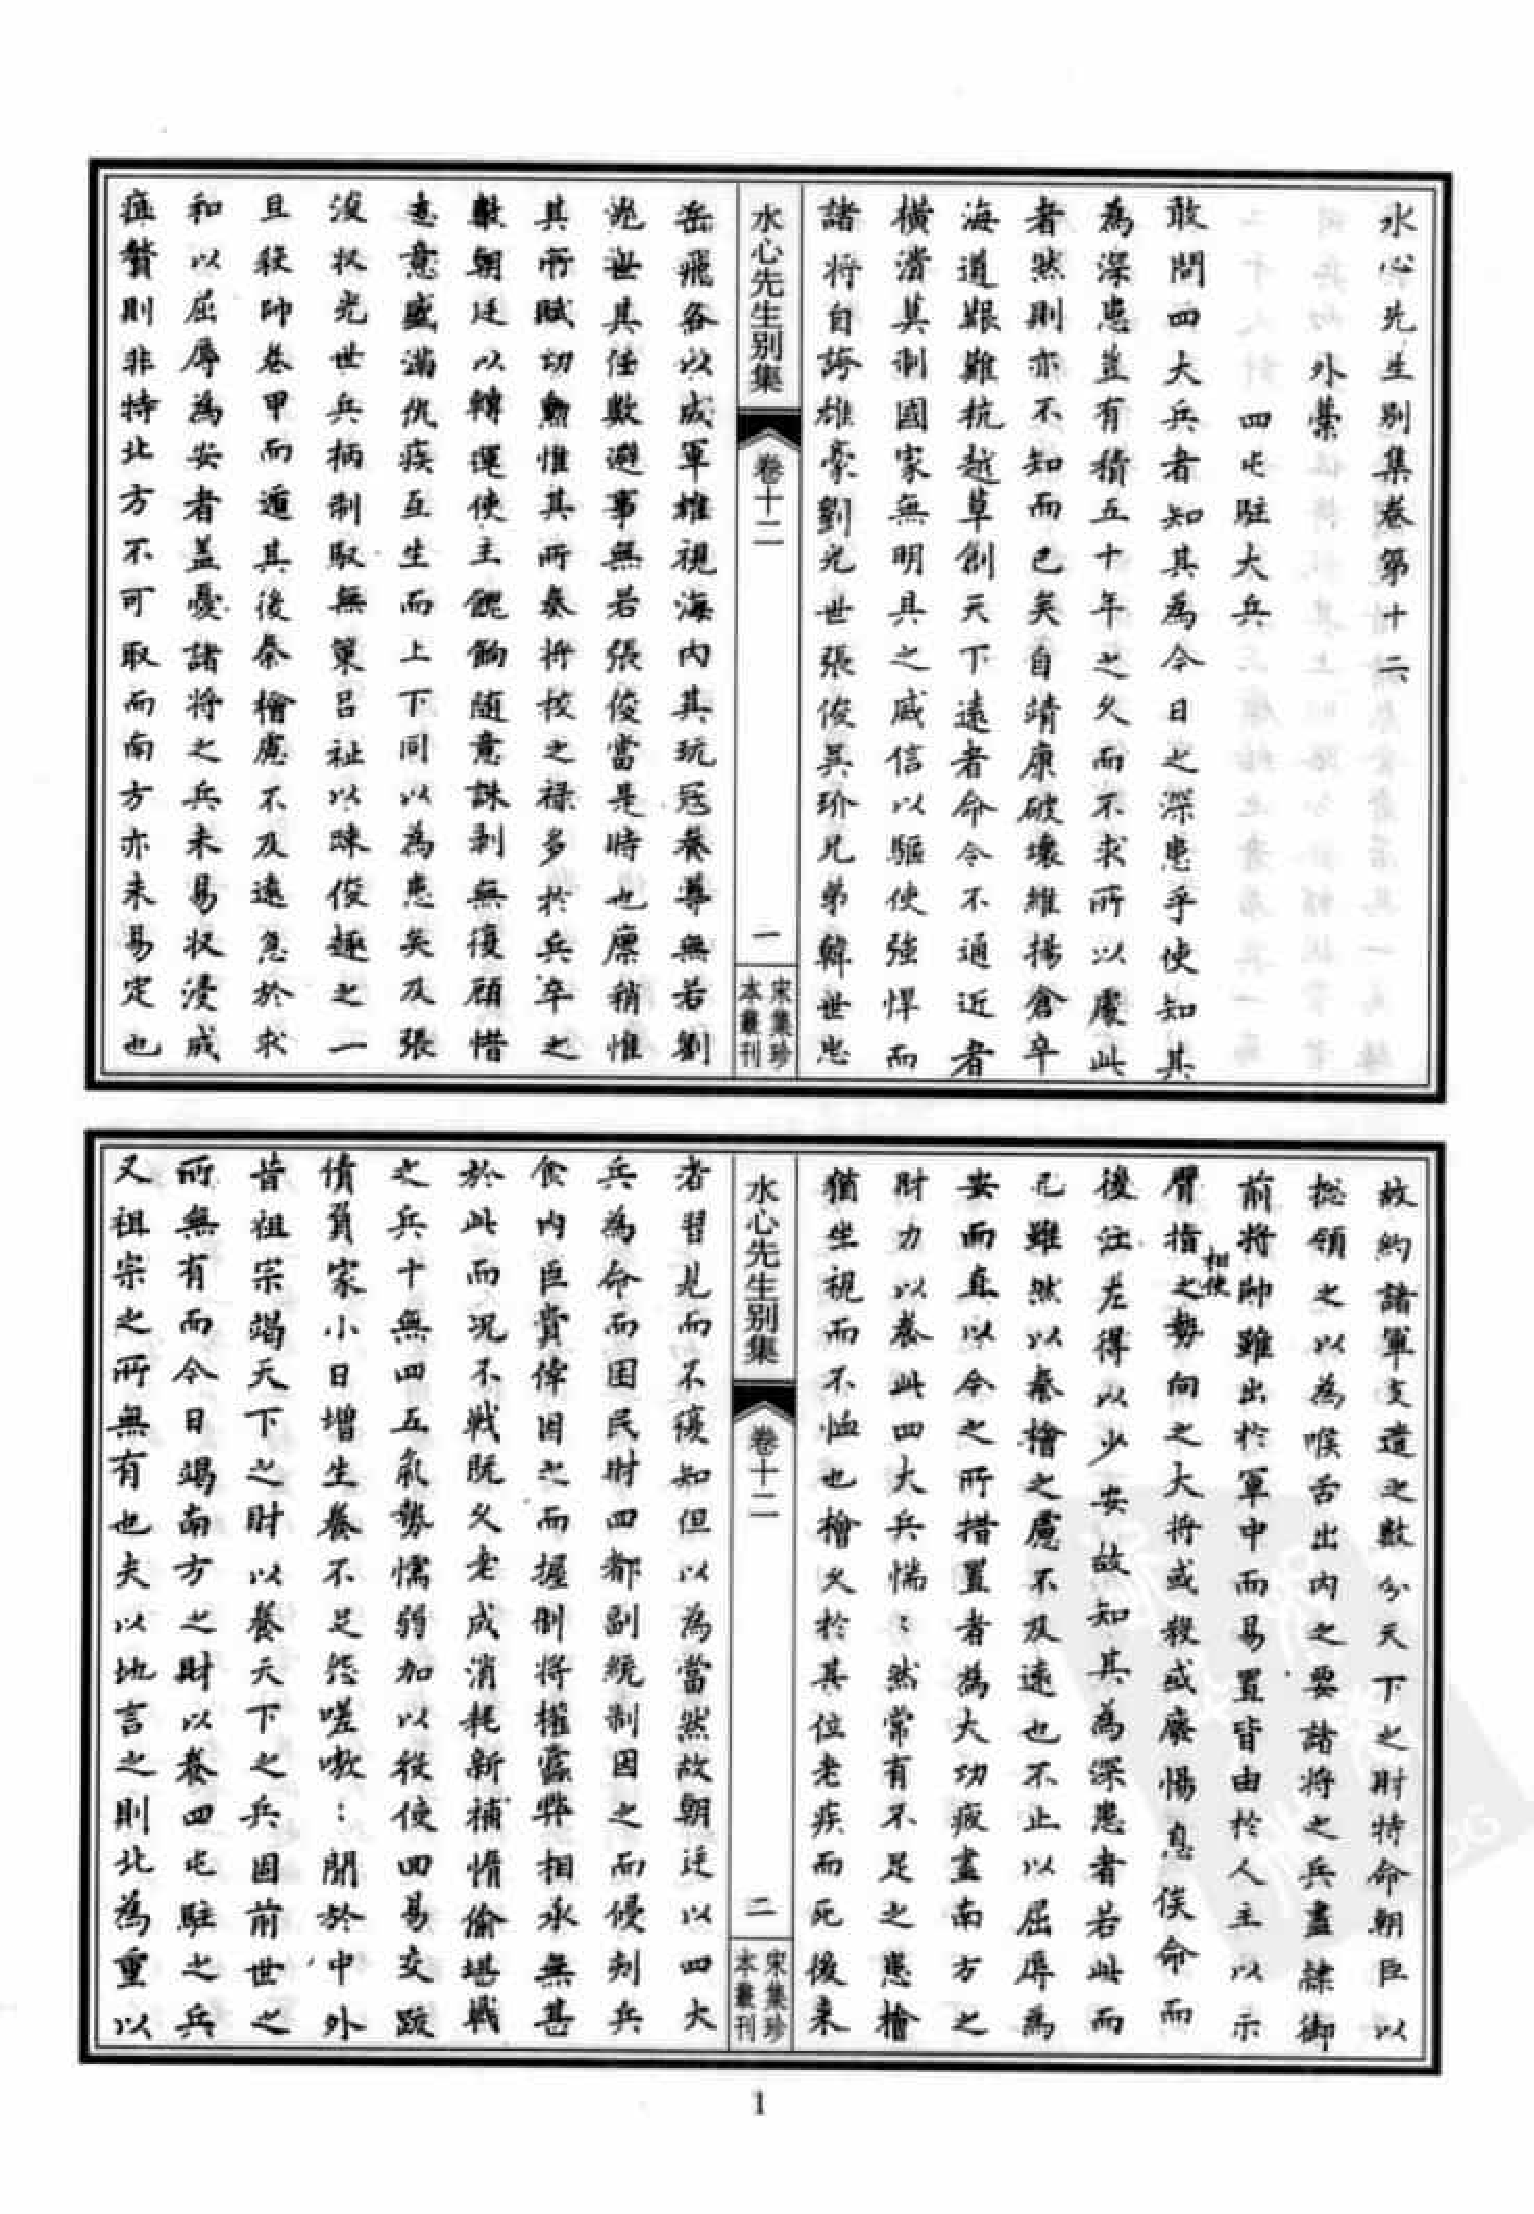 水心先生别集卷第十二
外藁
四屯駐大兵
敢問四大兵者知其為今日之深患乎使知其
為深患豈有積五十年之久而不求所以處此
者然則亦不知而已矣自靖康破壞維揚倉卒
海道艱難杭越草創天下遠者命令不通近者
横潰莫制國家無明具之威信以驅使強悍而
諸将自誇雄豪劉光世張俊吳玠兄弟韓世忠
水心先生别集
卷十二
一
宋集珍
本叢刊
岳飛各以成軍雄視海内其玩冦養尊無若劉
光世其任數避事無若張俊當是時也廪稍惟
其所賦功勳惟其所奏将校之禄多於兵卒之
數朝廷以轉運使主餽餉随意誅剥無復顧惜
志意盛滿仇疾互生而上下同以為患矣及張
浚収光世兵柄制馭無策吕祉以踈俊趣之一
旦殺帥卷甲而遁其後秦檜慮不及遠急於求
和以屈辱為安者盖憂諸将之兵未易収浸成
疽贅則非特北方不可取而南方亦未易定也
故約諸軍支遣之數分天下之財特命朝臣以
揔領之以為喉舌出内之要諸将之兵盡隸御
前将帥雖出於軍中而易置皆由於人主以示
臂指相使之勢向之大将或殺或廢惕息俟命而
後江左得以少安故知其為深患者若此而
已雖然以秦檜之慮不及遠也不止以屈辱為
安而直以今之所措置者為大功疲盡南方之
財力以養此四大兵惴：然常有不足之患檜
猶坐視而不恤也檜久於其位老疾而死後来
水心先生别集
卷十二
二
宋集珍
本叢刊
者習見而不復知但以為當然故朝廷以四大
兵為命而困民財四都副統制因之而侵刻兵
食内臣貨倖因之而握制将權蠹弊相承無甚
於此而况不戰既久老成消耗新補惰偷堪戰
之兵十無四五氣勢懦弱加以役使回易交跋
債負家小日增生養不足怨嗟嗷：聞於中外
昔祖宗竭天下之財以養天下之兵固前世之
所無有而今日竭南方之財以養四屯駐之兵
又祖宗之所無有也夫以地言之則北為重以
1